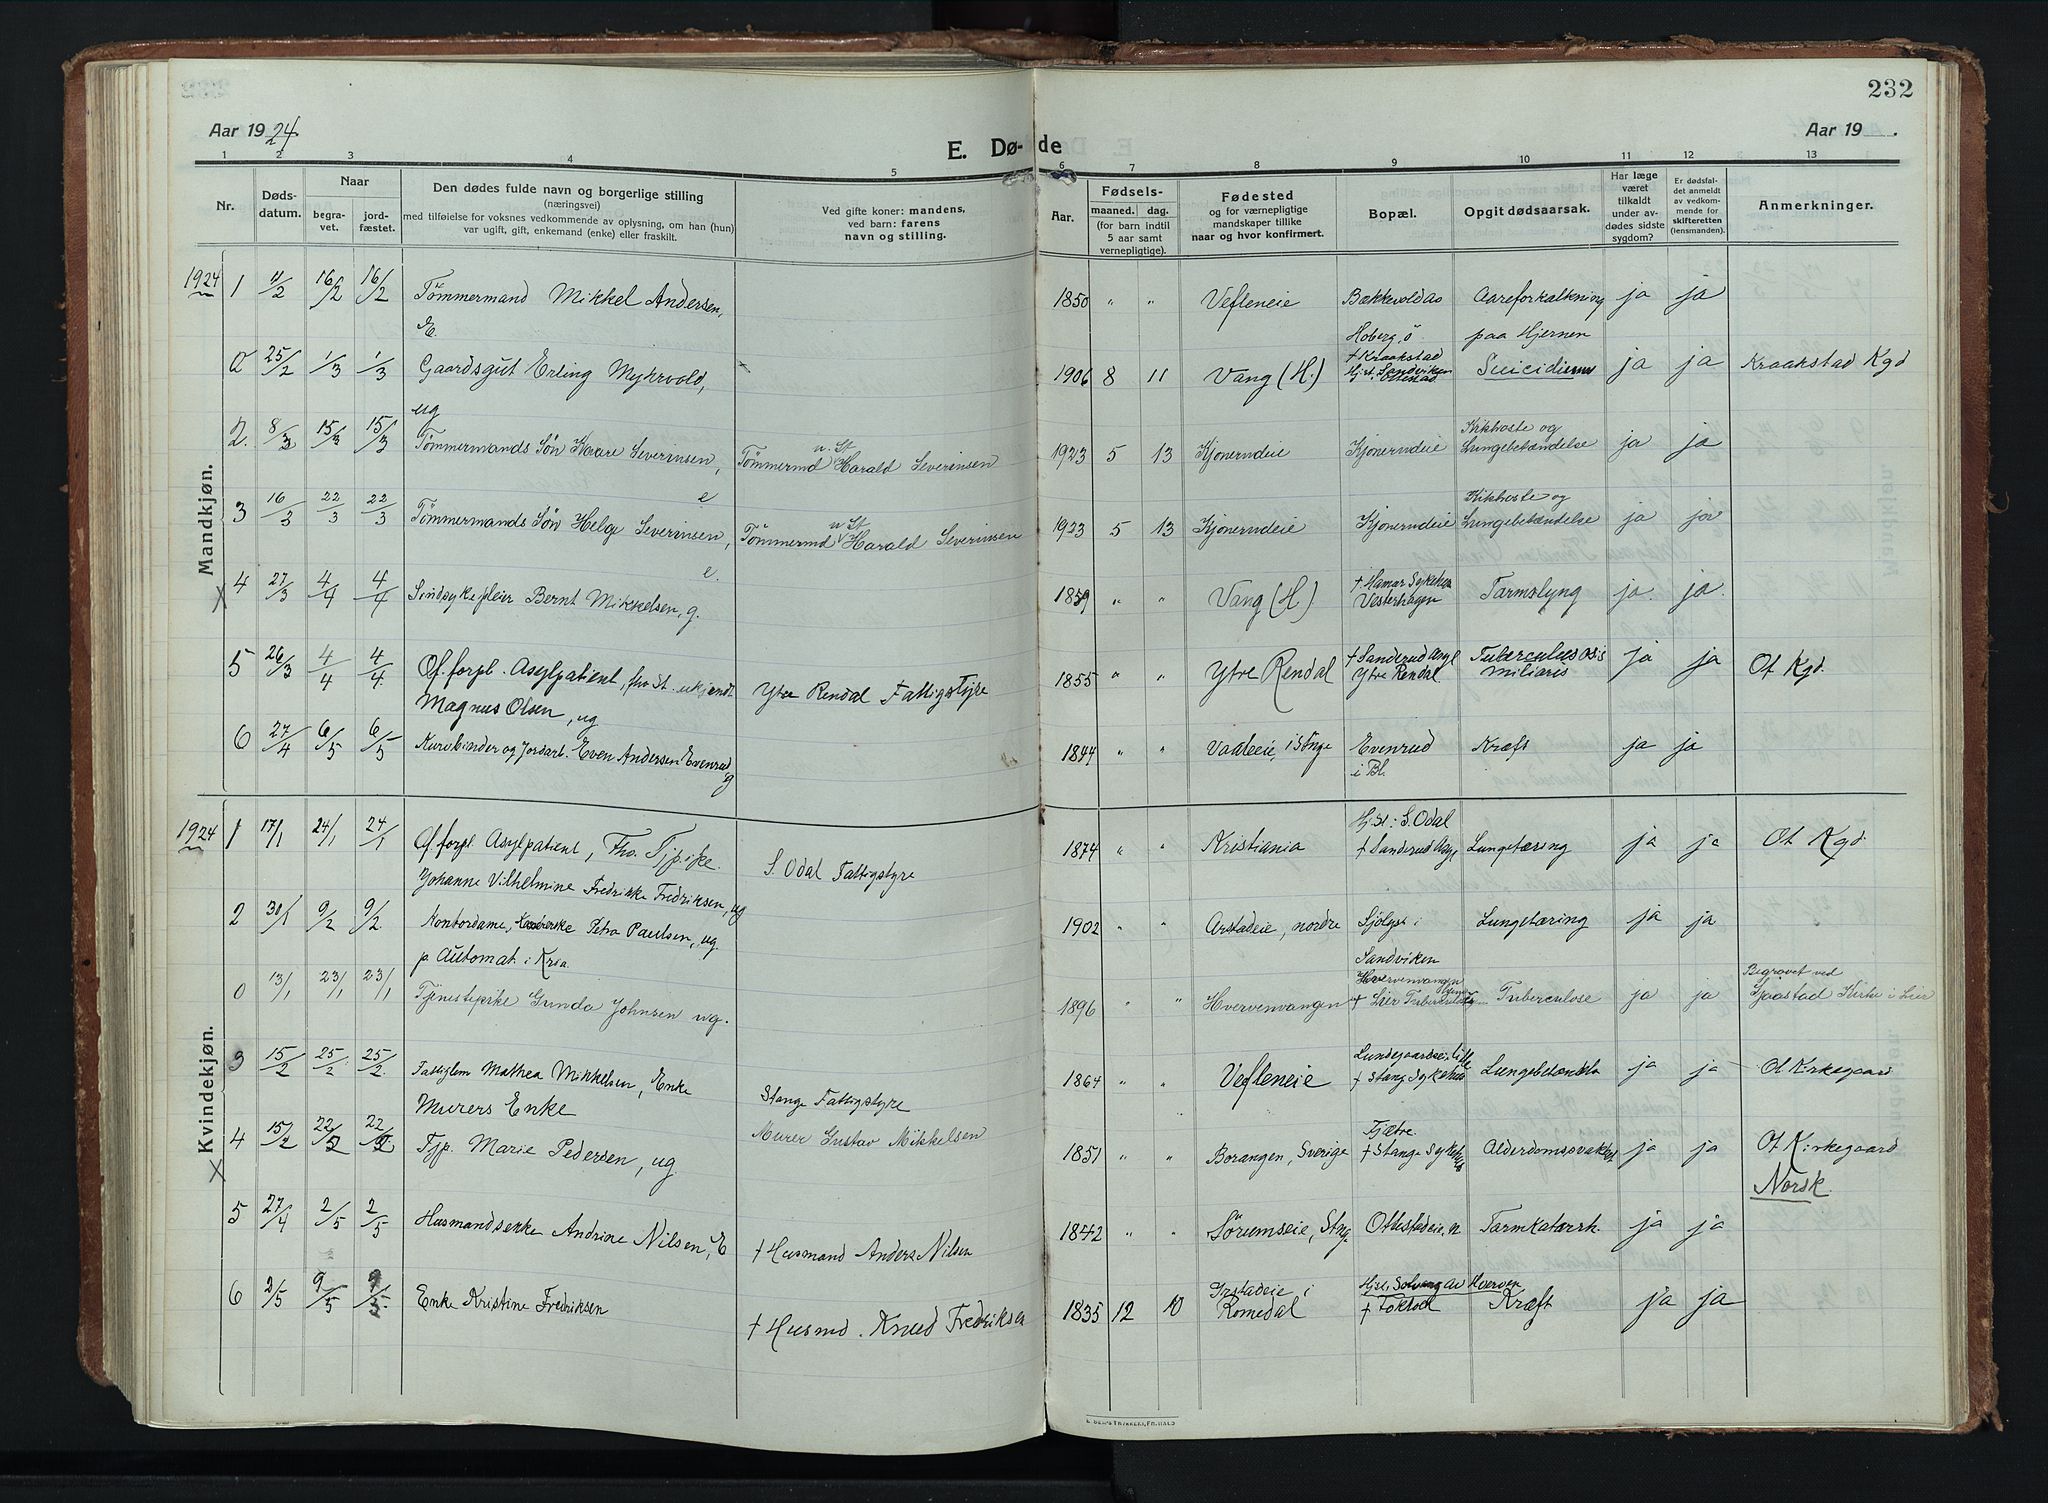 232
Aar 1924.
E. Dø- de
Aar 19 .
1 2 3 4 5 6 7 8 9 10 11 12 13
Nr.
Døds-
datum.
Naar
begra-
vet.
jord-
fæstet.
Den dødes fulde navn og borgerlige stilling
(næringsvei)
med tilføielse for voksnes vedkommende av oplysning, om han (hun)
var ugift, gift, enkemand (enke) eller fraskilt.
Ved gifte koner: mandens,
ved barn: farens
navn og stilling.
Aar.
Fødsels-
maaned. dag.
(for barn indtil
5 aar samt
vernepligtige).
Fødested
og for værnepligtige
mandskaper tillike
naar og hvor konfirmert.
Bopæl.
Opgit dødsaarsak.
Har læge
været
tilkaldt
under av-
dødes sidste
sygdom?
Er dødsfal-
det anmeldt
av vedkom-
mende for
skifteretten
(lensmanden).
Anmerkninger.
Mandkjøn.
1924 1 11/2 16/2 16/2 Tømmermand Mikkel Andersen, E. 1850 " " Vefleneie Bækkevoldas Aareforkalkning ja ja
Hoberg, ö paa Hjernen
0 25/2 1/3 1/3 Gaardsgut Erling Myhrvold, ug 1906 8 11 Vang (H.) † Kraakstad Hjst. Sandviken Ottestad Suicidium ja ja Kraakstad Kgd
2. 8/3 15/3 15/3 Tømmermands Søn Kaare Severinsen, e Tømmermd u. St Harald Severinsen 1923 5 13 Kjonerudeie Kjonerudeie Kikhoste og Lungebetændelse ja ja
3 16/3 22/3 22/3 Tømmermands Søn Helge Severinsen, e. Tømmermd u St Harald Severinsen 1923 5 13 Kjonerudeie Kjonerudeie Kikhoste og Lungebetændelse ja ja
x 4 27/3 4/4 4/4 Sindsykepleier Bernt Mikkelsen, g. 1859 " " Vang (H) † Hamar Sykehus Vesterhagen Tarmslyng ja ja.
5 26/3 4/4 4/4 Of. forpl. Asylpatient, fho St. ukjendt Ytre Rendal Fattigstyre 1855 " " Ytre Rendal † Sanderud Asyl Ytre Rendal Tuberculosis miliaris ja ja Ot Kgd.
Magnus Olsen, ug
6 27/4 6/5 6/5 Kurvbinder og Jordarb. Even Andersen Evenrud, g 1844 " " Vadleeie, i Stange Evenrud i Bl. Kræft ja ja
Kvindekjøn.
1924 1 17/1 24/1 24/1 Of. forpl. Asylpatient, fho. Tjpike. S. Odal Fattigstyre 1874 " " Kristiania Hj. St: S. Odal † Sanderud Asyl Lungetæring ja ja Ot Kgd.
Johanne Vilhelmine Fredrikke Fredriksen, ug
2 30/1 9/2 9/2 Kontordame, Petra Paulsen, ug. 1902 " " Arstadeie, nordre Sjölyst i Sandviken Lungetæring ja ja
p Automat. i Kria.
0 13/1 23/1 23/1 Tjenestepike Gunda Johnsen ug. 1896 " " Hvervenvangen Hvervenvangen † Lier Tuberculosehjem Tuberculose ja ja Begravet ved Sjaastad Kirke i Lier
3 15/2 25/2 25/2 Fattiglem Mathea Mikkelsen, Enke Stange Fattigstyre 1864 " " Vefleneie Lundegaardseie, Lille † Stange Sykehus Lungebetændelse ja ja Ot Kirkegaard
Murers Enke Murer Gustav Mikkelsen
x 4 15/2 22/2 22/2 Tjp. Marie Pedersen, ug 1851 " " Borangen, Sverige Tjætre. † Stange Sykehus Alderdomssvakhet ja ja Ot Kirkegaard
Norsk.
5 27/4 2/5 2/5 Husmandsenke Andrine Nilsen, E † Husmand Anders Nilsen 1842 " " Sörumseie, Stnge. Ottestadeie, n Tarmkatarrh. ja ja
6 2/5 9/5 9/5 Enke Kristine Fredriksen † Husmd. Knud Fredriksen 1835 12 10 Arstadeie i Romedal Hjst. Solvang av Hverven † Fokhol Kræft ja ja
E. Sem's Trykkeri, Fr.hald